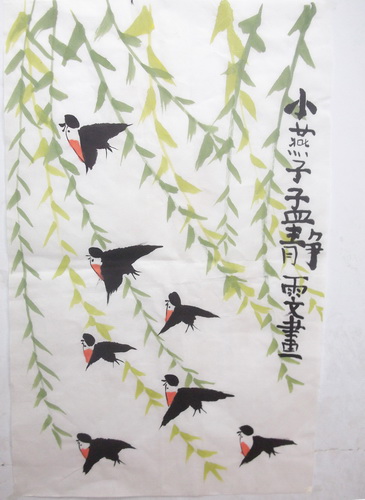 小燕子孟静雯畫